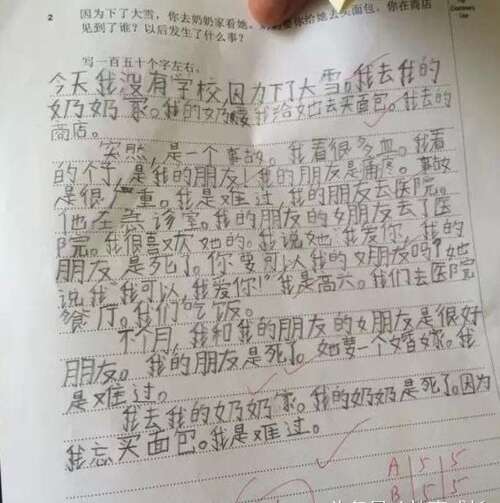 2 因为下了大雪，你去奶奶家看她。奶奶要你给她去买面包。你在商店
见到了谁？以后发生了什么事？
写一百五十个字左右。
今天我没有学校,因为下了大雪。我去我的
奶奶家。我的奶要我给她去买面包。我去的
商店。
突然,是一个事故。我看很多血。我看
的个,是我的朋友！我的朋友是痛疼。事故
是很严重。我是难过,我的朋友去医院。
他在急诊室。我的朋友的女朋友去了医
院。我很喜欢她的。我说她“我爱你,我的
朋友是死了。你要可以我的女朋友吗?”她
说我“我可以,我爱你!”我是高六。我们去医院
餐厅。我们吃饭。
个月,我和我的朋友的女朋友是很好
朋友。我的朋友是死了。她要一个婚嫁。我
是难过。
我去我的奶奶家。我的奶奶是死了。因为
我忘买面包。我是难过。
A 5 5
B 5 5